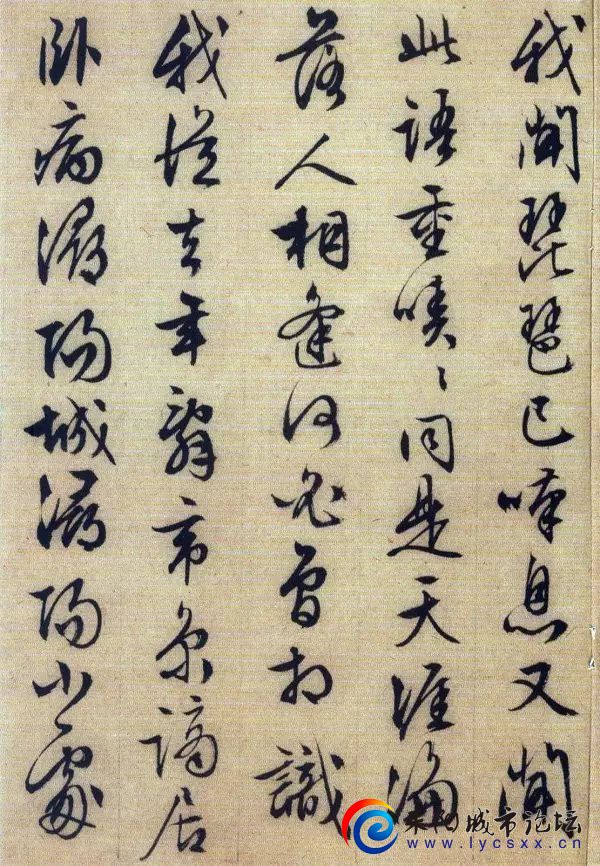 我聞琵琶已嘆息又聞
此語重唧〻同是天涯淪
落人相逢何必曾相識
我從去年辭帝京謫居
卧病潯陽城潯陽小處
耒阳城市论坛
www.lycsxx.cn